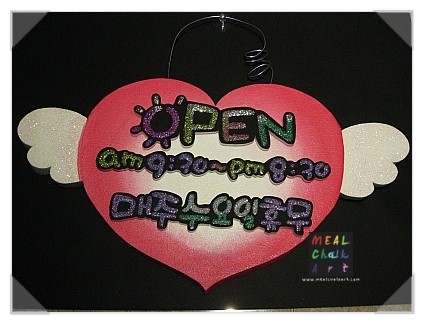 OPEN
am 9:30~pm 8:30
매주수요일휴무
MEAL
Chalk
Art
www.mealchalkart.com